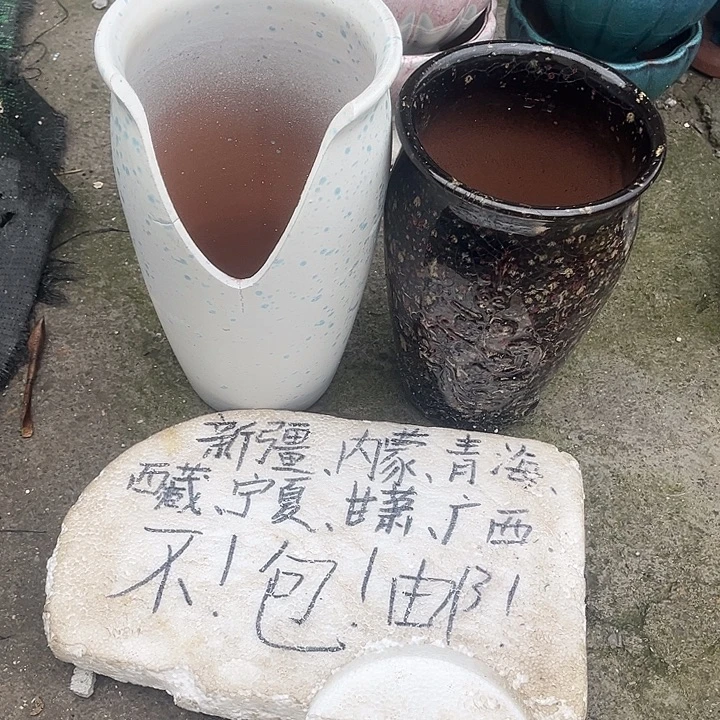 新疆、内蒙、青海、
西藏、宁夏、甘萧、广西
不!包!由邮!